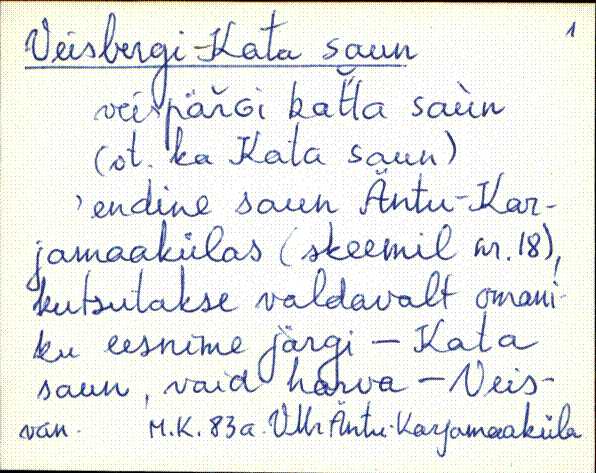 1
Veisbergi-Kata saun
veispäŕGi kat̆t̆a saùn
(vt. ka Kata saun)
'endine saun Äntu-Kar-
jamaakülas (skeemil nr. 18),
kutsutakse valdavalt omani-
ku eesnime järgi – Kata
saun, vaid harva – Veis-
van. M.K. 83a. VMr Äntu-Karjamaaküla